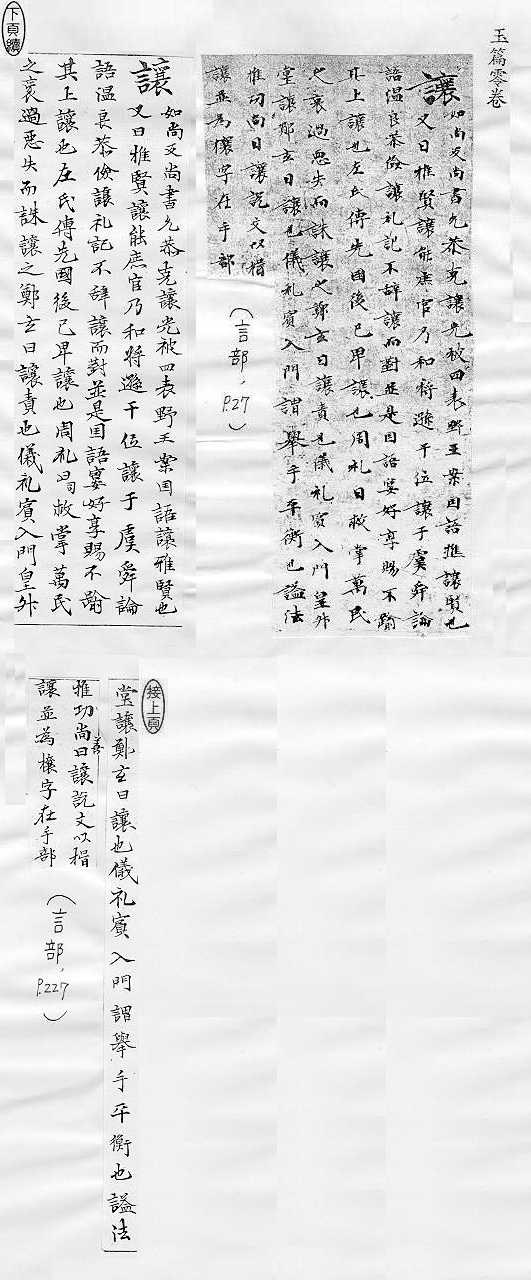 玉篇零卷
讓
如尚反尚書允恭克讓光被四表野王案国語推讓賢也
又曰推賢讓能庶官乃和將遜于位讓于虞舜論
語温良恭儉讓礼記不辞讓而對並是国語宴好享賜不踰
其上讓也左氏傳先国後己卑讓也周礼日救掌萬民
之衺過惡失而誅讓之鄭玄曰讓責也儀礼賓入門皇升
堂讓鄭玄曰讓也儀礼賓入門謂舉手平衡也謚法
推功尚曰讓説文以揖
讓並為攘字在手部
(言部, P.27)
讓
如尚反尚書允恭克讓光被四表野王案国語讓推賢也
又曰推賢讓能庶官乃和將遜于位讓于虞舜論
語温良恭儉讓礼記不辭讓而對並是国語宴好享賜不踰
其上讓也左氏傳先國後己卑讓也周礼司救掌萬民
之衺過惡失而誅讓之鄭玄曰讓責也儀礼賓入門皇升
下頁續
接上頁
堂讓鄭玄曰讓也儀礼賓入門謂舉手平衡也謚法
推功尚善曰讓説文以揖
讓並為攘字在手部
(言部, P.227)